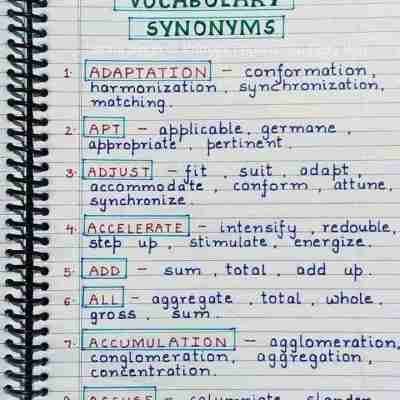 VOCABULARY
SYNONYMS
1. ADAPTATION - conformation,
harmonization, synchronization,
matching.
2. APT - applicable, germane,
appropriate, pertinent.
3. ADJUST - fit, suit, adapt,
accommodate, conform, attune,
synchronize.
4. ACCELERATE - intensify, redouble,
step up, stimulate, energize.
5. ADD - sum, total, add up.
6. ALL - aggregate, total, whole,
gross, sum.
7. ACCUMULATION - agglomeration,
conglomeration, aggregation,
concentration.
8. ACCUSE - calumniate, slander,